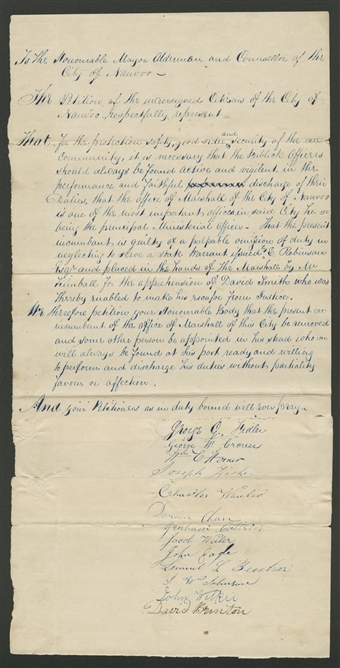 To the Honourable Mayor Alderman and Counsellor of the
City of Nauvoo—
The Petition of the undersigned Citizens of the City of
Nauvoo respectfully represent
That for the protection safety, good order and security of the
Community, it is necessary that the Publick Officers
should always be found active and vigilent in the
performance and faithful discharge of their
Duties, that the office of Marshall of the City of Nauvoo
is one of the most important offices in said City he
being the principal Ministerial officer— That the present
incumbant is guilty of a palpable omission of duty in
neglecting to serve a State Warrant issued E. Robinson
Esqr and placed in the hands of the Marshall by Mr
Kimball for the apprehension of David Smith who was
thereby enabled to make his escape from Justice.
We therefore petition your Honourable Body that the present
incumbant of the office of Marshall of this City be removed
and some other person be appointed in his stead who
will always be found at his post ready and willing
to perform and discharge his duties without partiality
favour or affection.
And your Petitioners as in duty bound will ever pray.
George G.
George W Crouse
Wm C Horner
Joseph
Charles
Jacob
John
Samuel L
Johnson
John
David Brinton